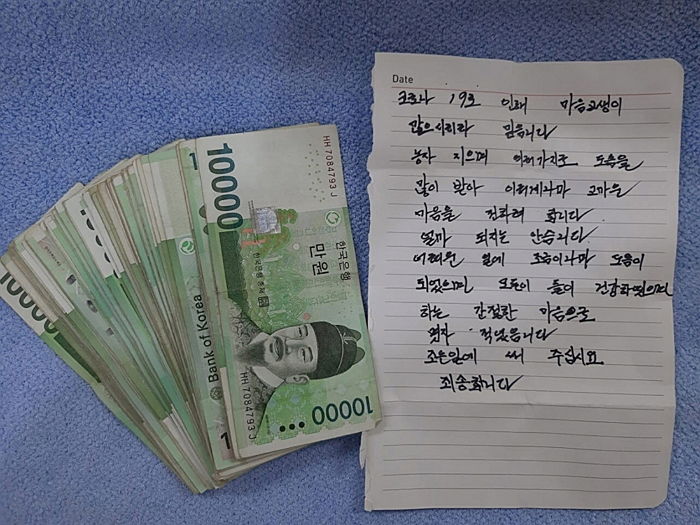 10000
HH 7084793 J
한국은행
만원
한국은행 총재
Bank of Korea
HH 7084793 J
10000
10000
Date
코로나 19로 인해 마음고생이
많으시리라 믿읍니다
농사 지으며 여러가지로 도움을
많이 받아 이러게나마 고마운
마음을 전하려 합니다
얼마 되지는 안습니다
어려운 일에 조금이나마 도움이
되었으면 모든이 들이 건강하였으면
하는 간절한 마음으로
몇자 적었읍니다
조은일에 써 주십시요
죄송합니다